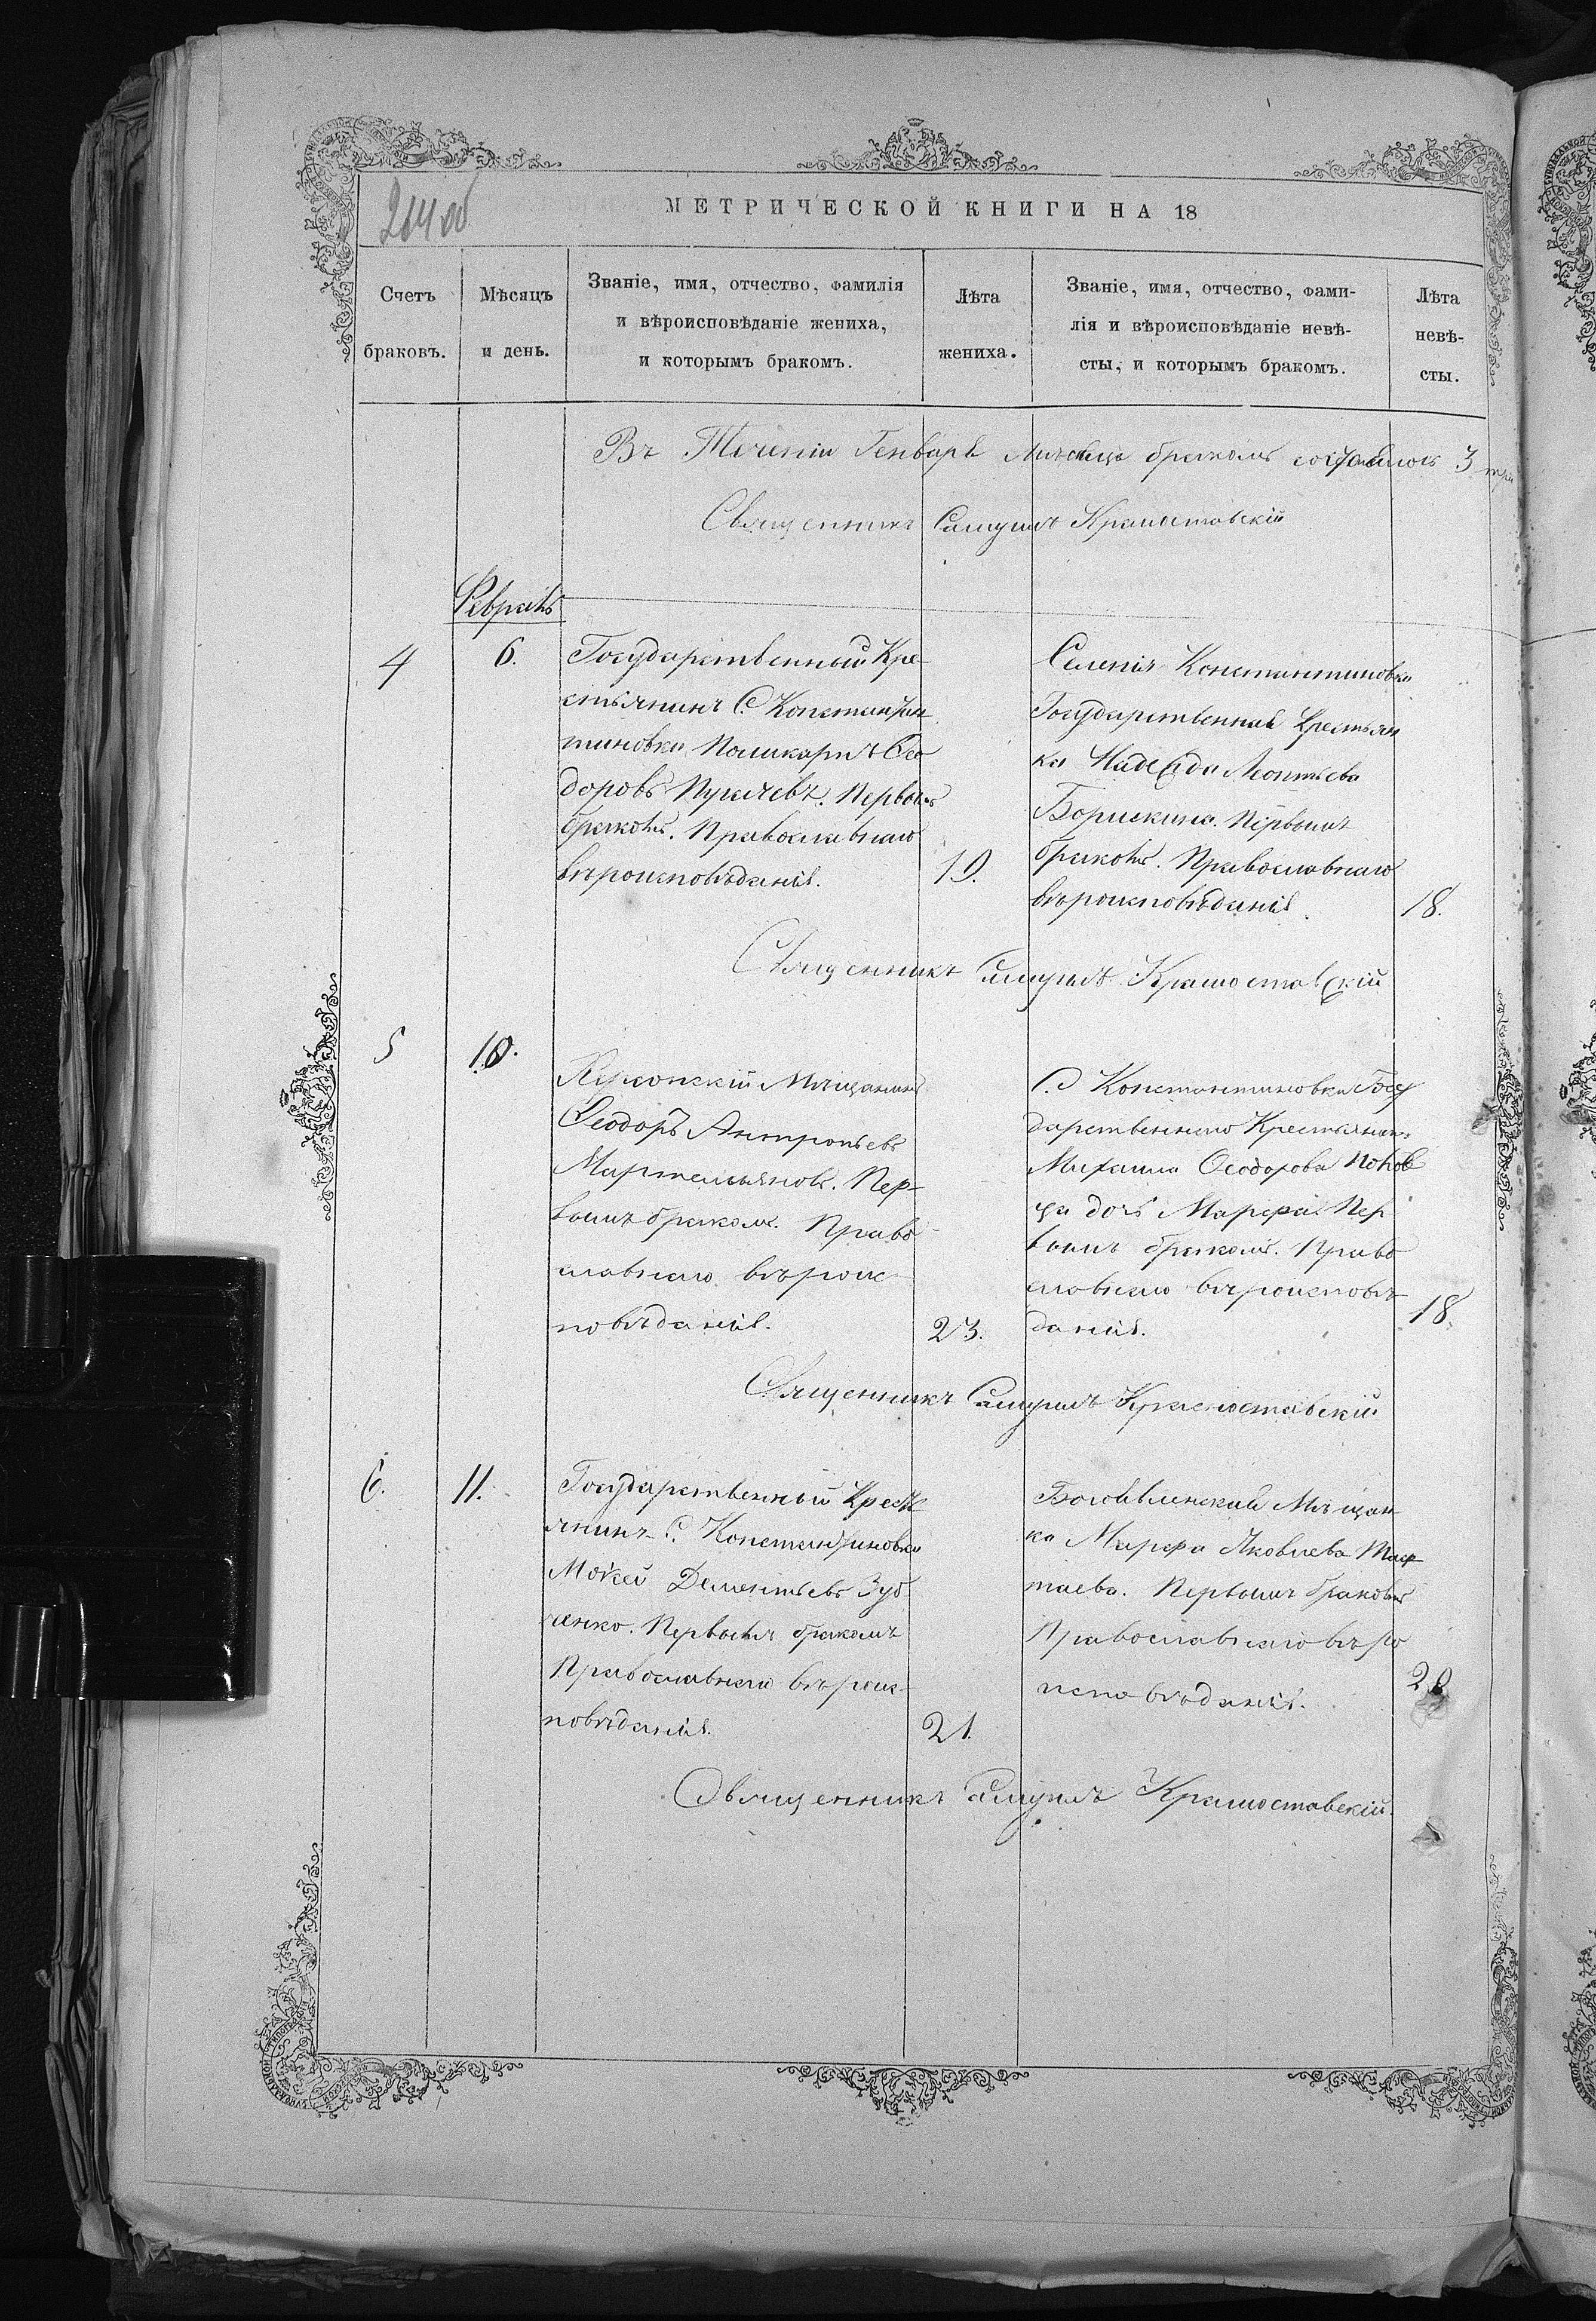 264 об
МЕТРИЧЕСКОЙ КНИГИ НА 18
Счетъ браковъ.
Мѣсяцъ и день.
Званіе, имя, отчество, фамилія
и вѣроисповѣданіе жениха,
и которымъ бракомъ.
Лѣта
жениха.
Званіе, имя, отчество, фами-
лія и вѣроисповѣданіе невѣ-
сты, и которымъ бракомъ.
Лѣта
невѣ-
сты.
Въ Теченіи Генварѣ Мѣсяца браковъ 3 три
Священникъ Самуилъ Крамоставскій
Февраль
4
6.
Государственный Кре-
стьянинъ С. Констан
тиновки Поликарпъ Ѳео
доровъ Пугачевъ. Первымъ
бракомъ. Православнаго
вѣроисповѣданія.
19.
Селенія Константиновки
Государственная Крестьян
ка Надежда Леонтьева
Борискина. Первымъ
бракомъ. Православнаго
вѣроисповѣданія.
18.
Священникъ Самуилъ Крамоставскій
5
10.
Херсонскій Мѣщанинъ
Ѳеодоръ Антропьевъ
Мартемьяновъ. Пер-
вымъ бракомъ. Право
славнаго вѣроис
повѣданія.
23.
С Константиновки Госу
дарственнаго Крестьянин
Михаила Ѳеодорова Попов
ца дочь Марфа. Пер
вымъ бракомъ. Право
славнаго вѣроисповѣ
данія.
18.
Священникъ Самуилъ Крамоставскій
6.
11.
Государственный Кресть
янинъ С. Константиновки
Мокей Дементьевъ Зуб
ченко. Первымъ бракомъ
Православнаго вѣроис-
повѣданія.
21.
Богоявленская Мѣщан
ка Марфа Яковлева
таева. Первымъ бракомъ
Православнаго вѣро
исповѣданія.
20
Священникъ Самуилъ Крамоставскій.